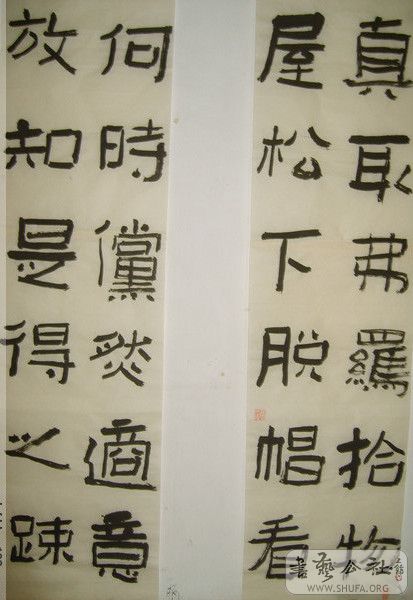 真取弗羈拾物
屋松下脫帽看
何時儻然適意
放知是得之疎
書藝公社
WWW.SHUFA.ORG